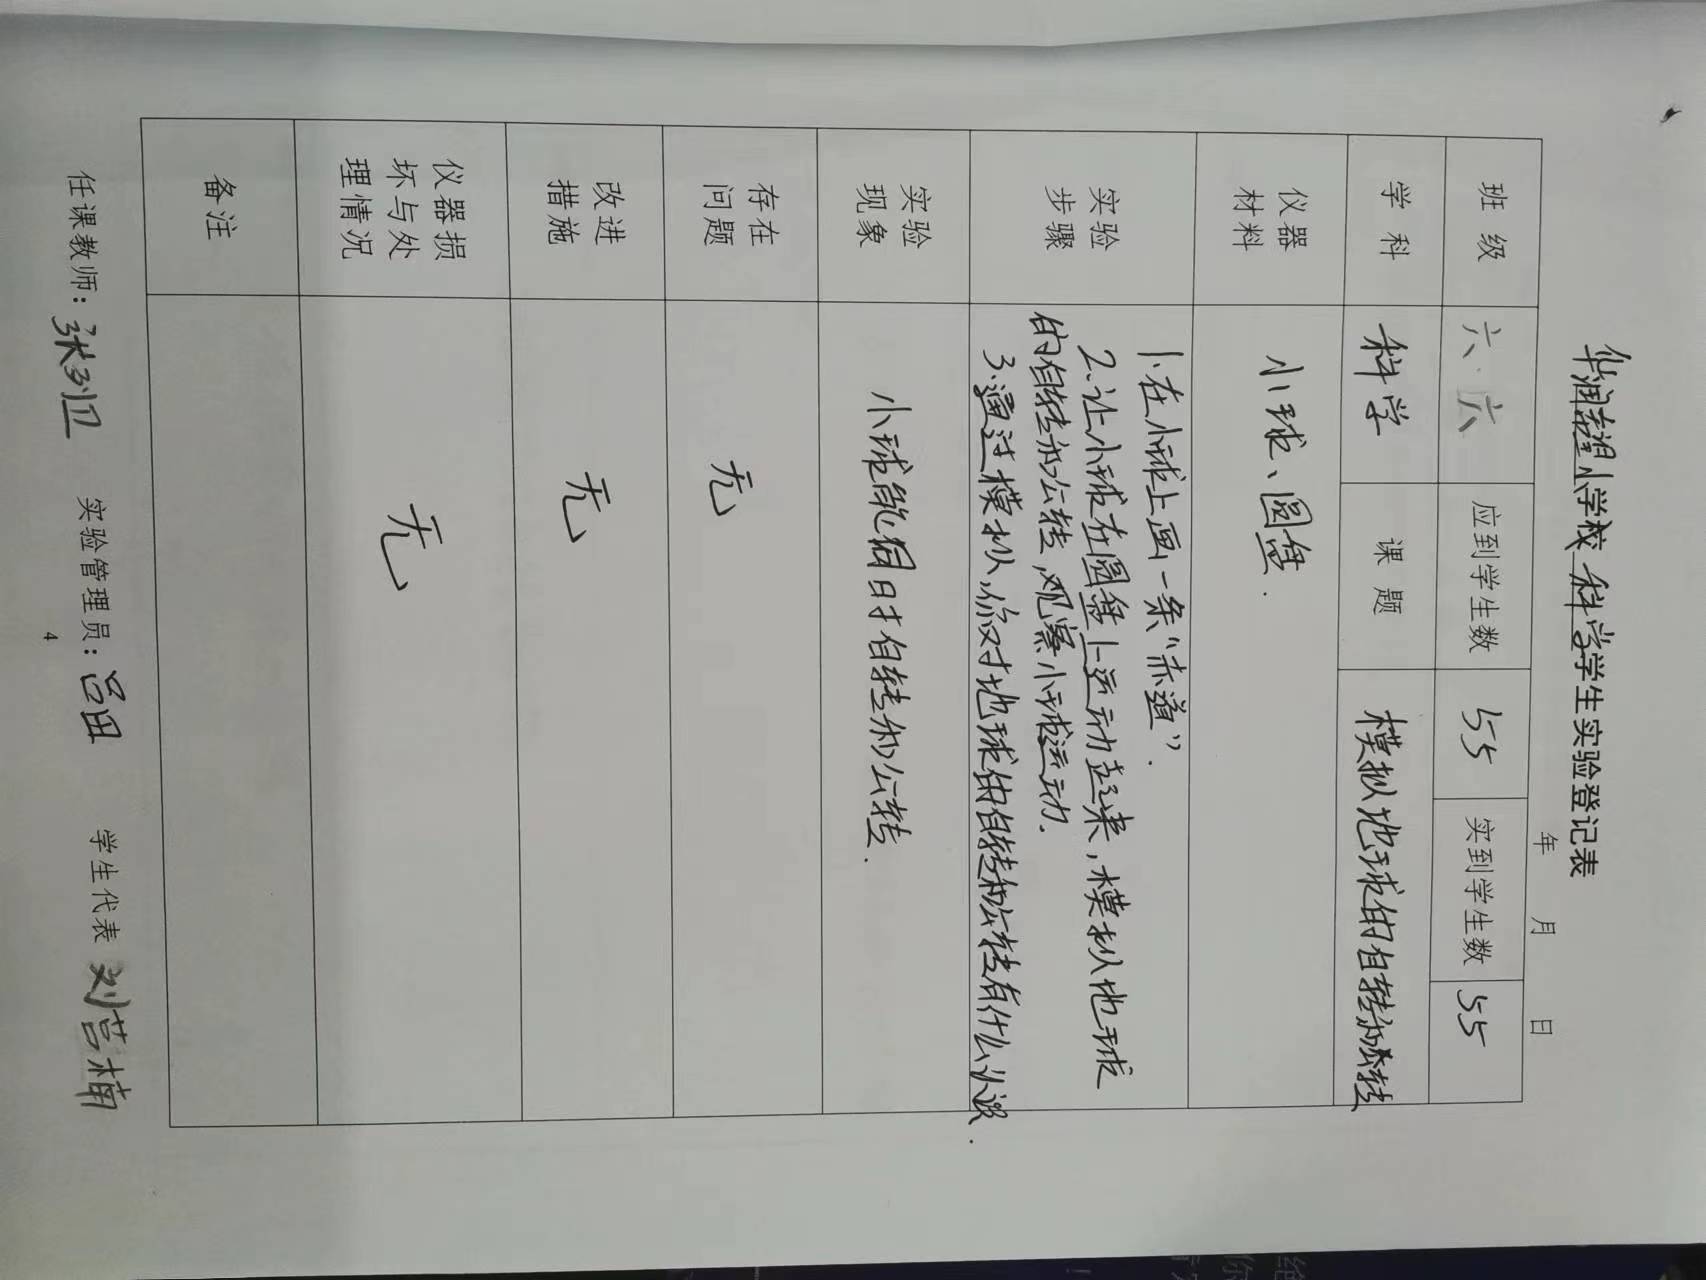 华润希望小学校 科学 学生实验登记表
年 月 日
班级 六.六 应到学生数 55 实到学生数 55
学科 科学 课题 模拟地球的自转和公转
仪器
材料
小球、圆盘.
实验
步骤
1.在小球上画一条“赤道”.
2.让小球在圆盘上运动起来,模拟地球
的自转和公转,观察小球运动.
3.通过模拟,你对地球的自转和公转有什么认识.
实验
现象
小球能同时自转和公转.
存在
问题
无
改进
措施
无
仪器损
坏与处
理情况
无
备注
任课教师: 张 实验管理员: 吕田 学生代表 刘营楠
4
绝
你
!